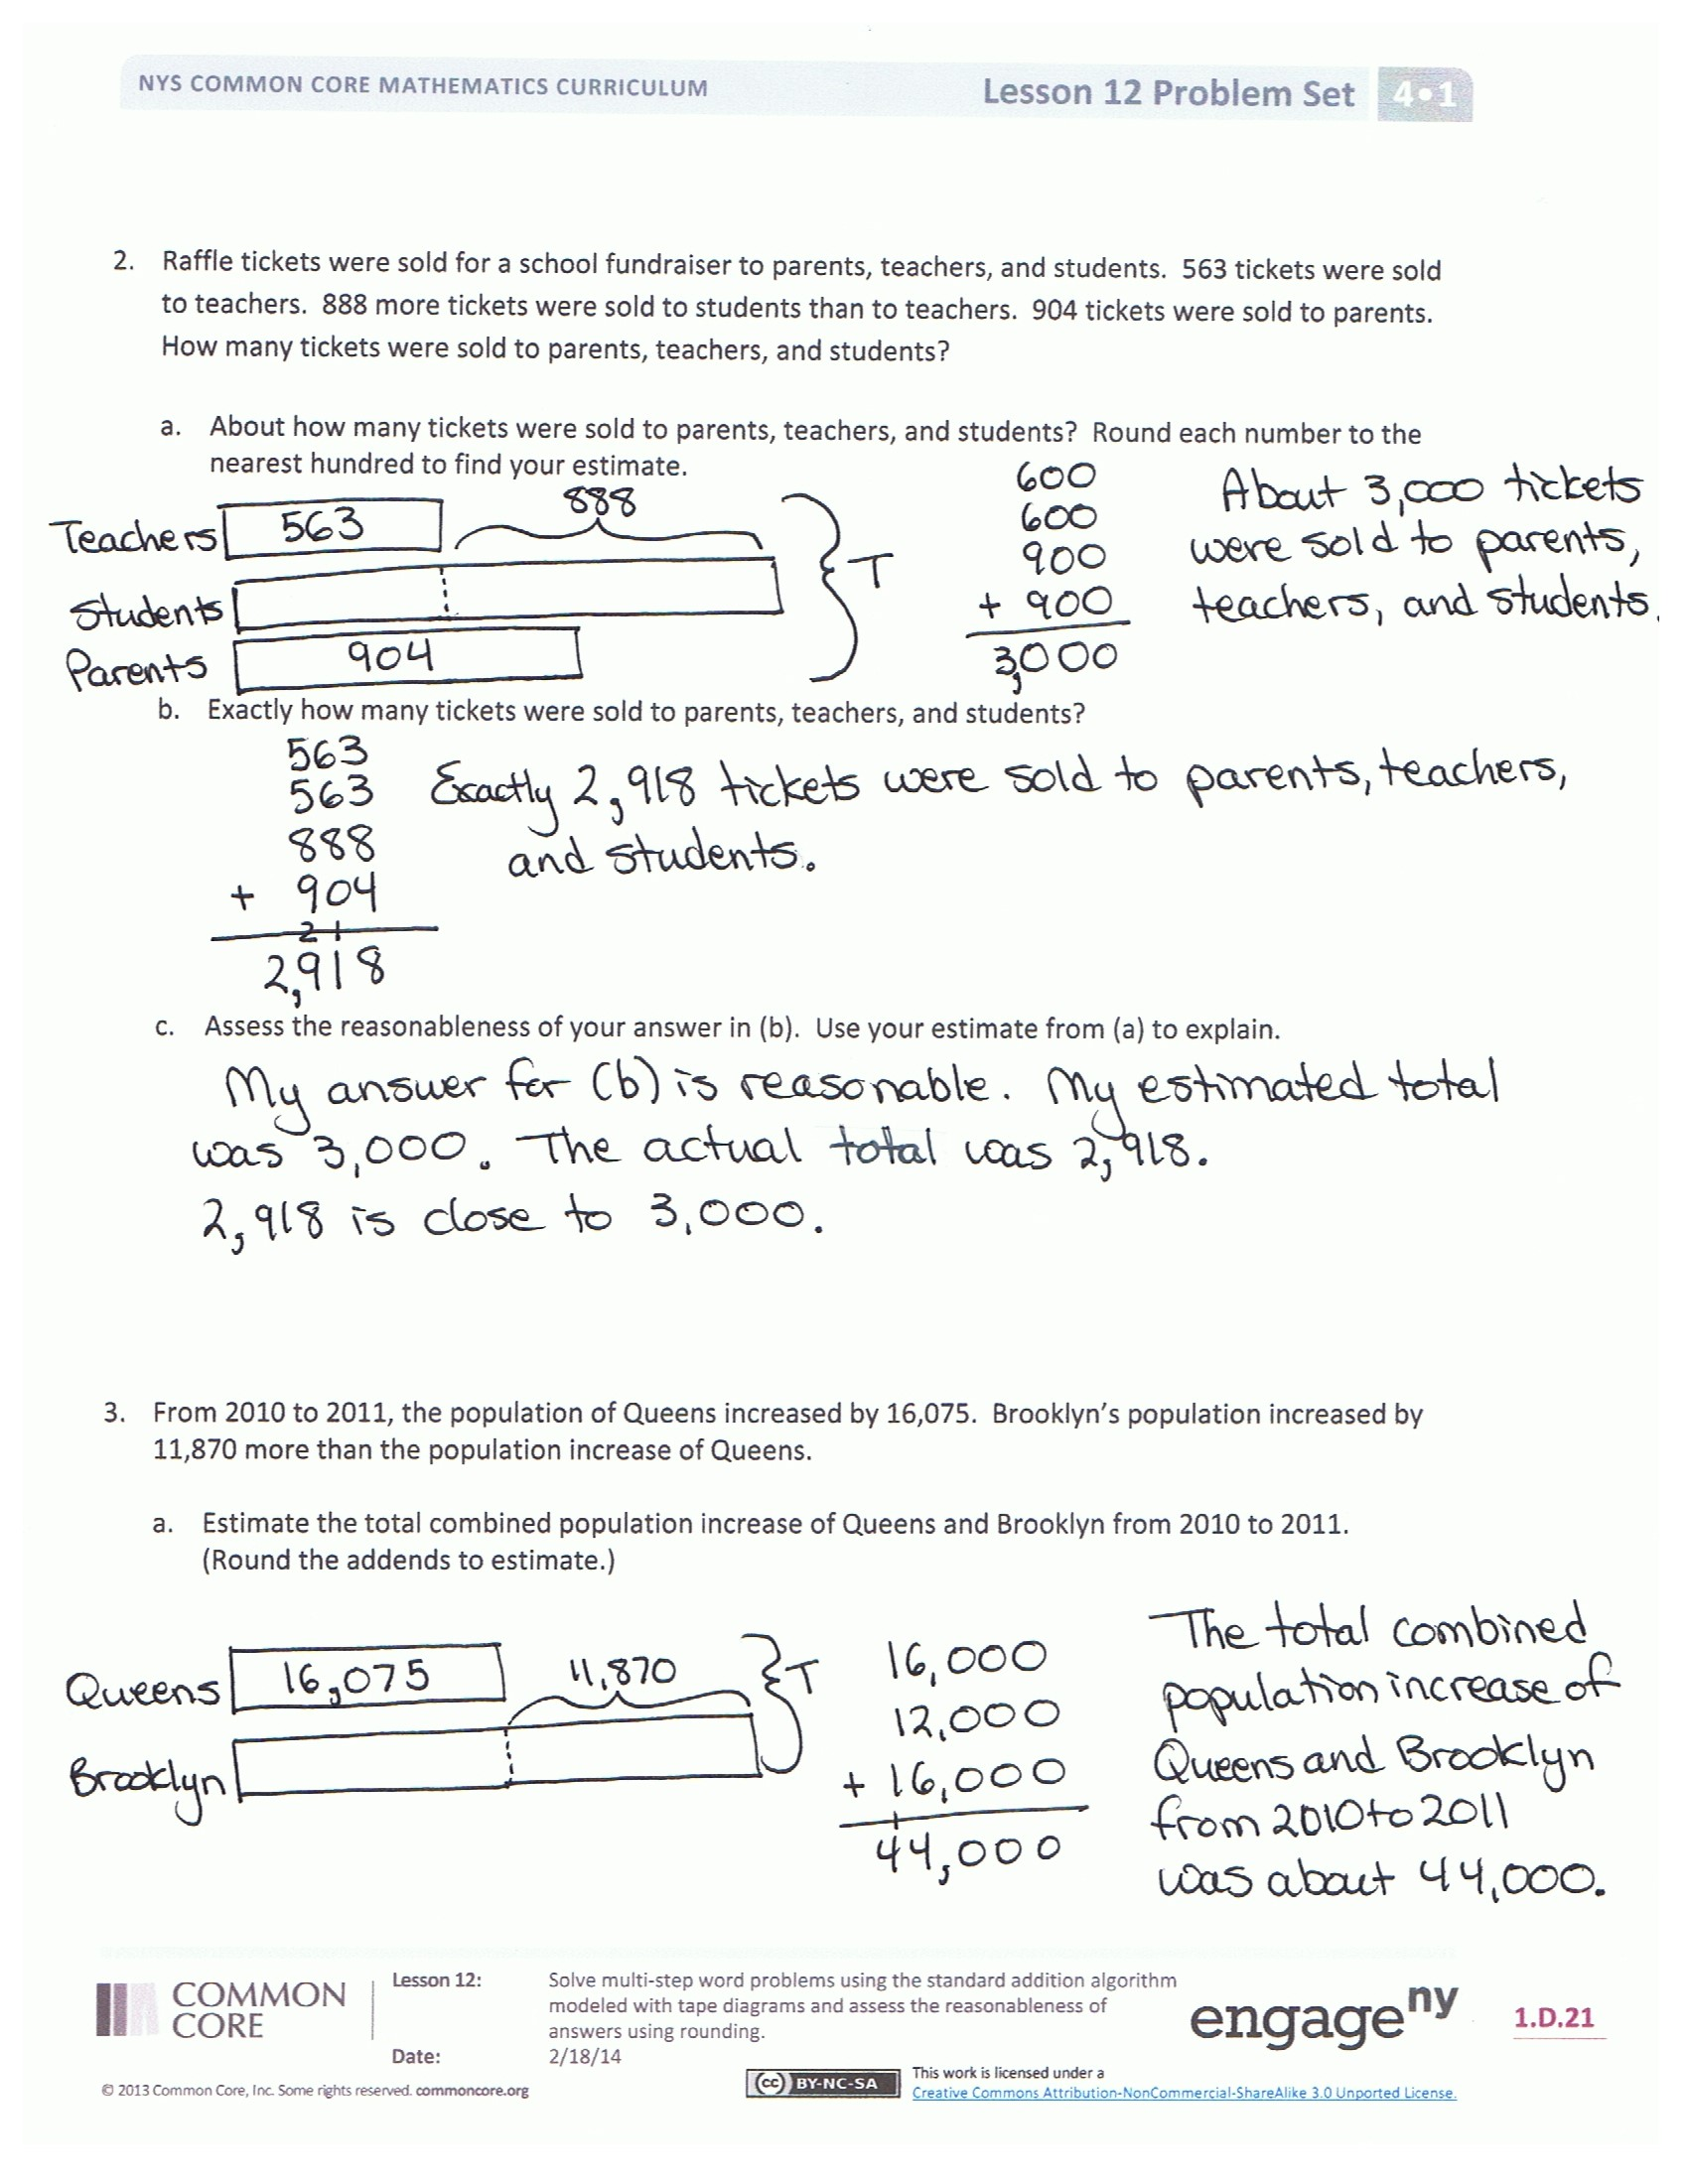 NYS COMMON CORE MATHEMATICS CURRICULUM
Lesson 12 Problem Set
4•1
2. Raffle tickets were sold for a school fundraiser to parents, teachers, and students. 563 tickets were sold
to teachers. 888 more tickets were sold to students than to teachers. 904 tickets were sold to parents.
How many tickets were sold to parents, teachers, and students?
a. About how many tickets were sold to parents, teachers, and students? Round each number to the
nearest hundred to find your estimate.
Teachers 563 888
Students
Parents 904
T
600
600
900
+ 900
3,000
About 3,000 tickets
were sold to parents,
teachers, and students.
b. Exactly how many tickets were sold to parents, teachers, and students?
563
563
888
+ 904
2 1
2,918
Exactly 2,918 tickets were sold to parents, teachers,
and students.
c. Assess the reasonableness of your answer in (b). Use your estimate from (a) to explain.
My answer for (b) is reasonable. My estimated total
was 3,000. The actual total was 2,918.
2,918 is close to 3,000.
3. From 2010 to 2011, the population of Queens increased by 16,075. Brooklyn's population increased by
11,870 more than the population increase of Queens.
a. Estimate the total combined population increase of Queens and Brooklyn from 2010 to 2011.
(Round the addends to estimate.)
Queens 16,075 11,870
Brooklyn
T
16,000
12,000
+ 16,000
1
44,000
The total combined
population increase of
Queens and Brooklyn
from 2010 to 2011
was about 44,000.
COMMON
CORE
Lesson 12:
Solve multi-step word problems using the standard addition algorithm
modeled with tape diagrams and assess the reasonableness of
answers using rounding.
Date:
2/18/14
engage ny
1.D.21
© 2013 Common Core, Inc. Some rights reserved. commoncore.org
(cc) BY-NC-SA
This work is licensed under a
Creative Commons Attribution-NonCommercial-ShareAlike 3.0 Unported License.